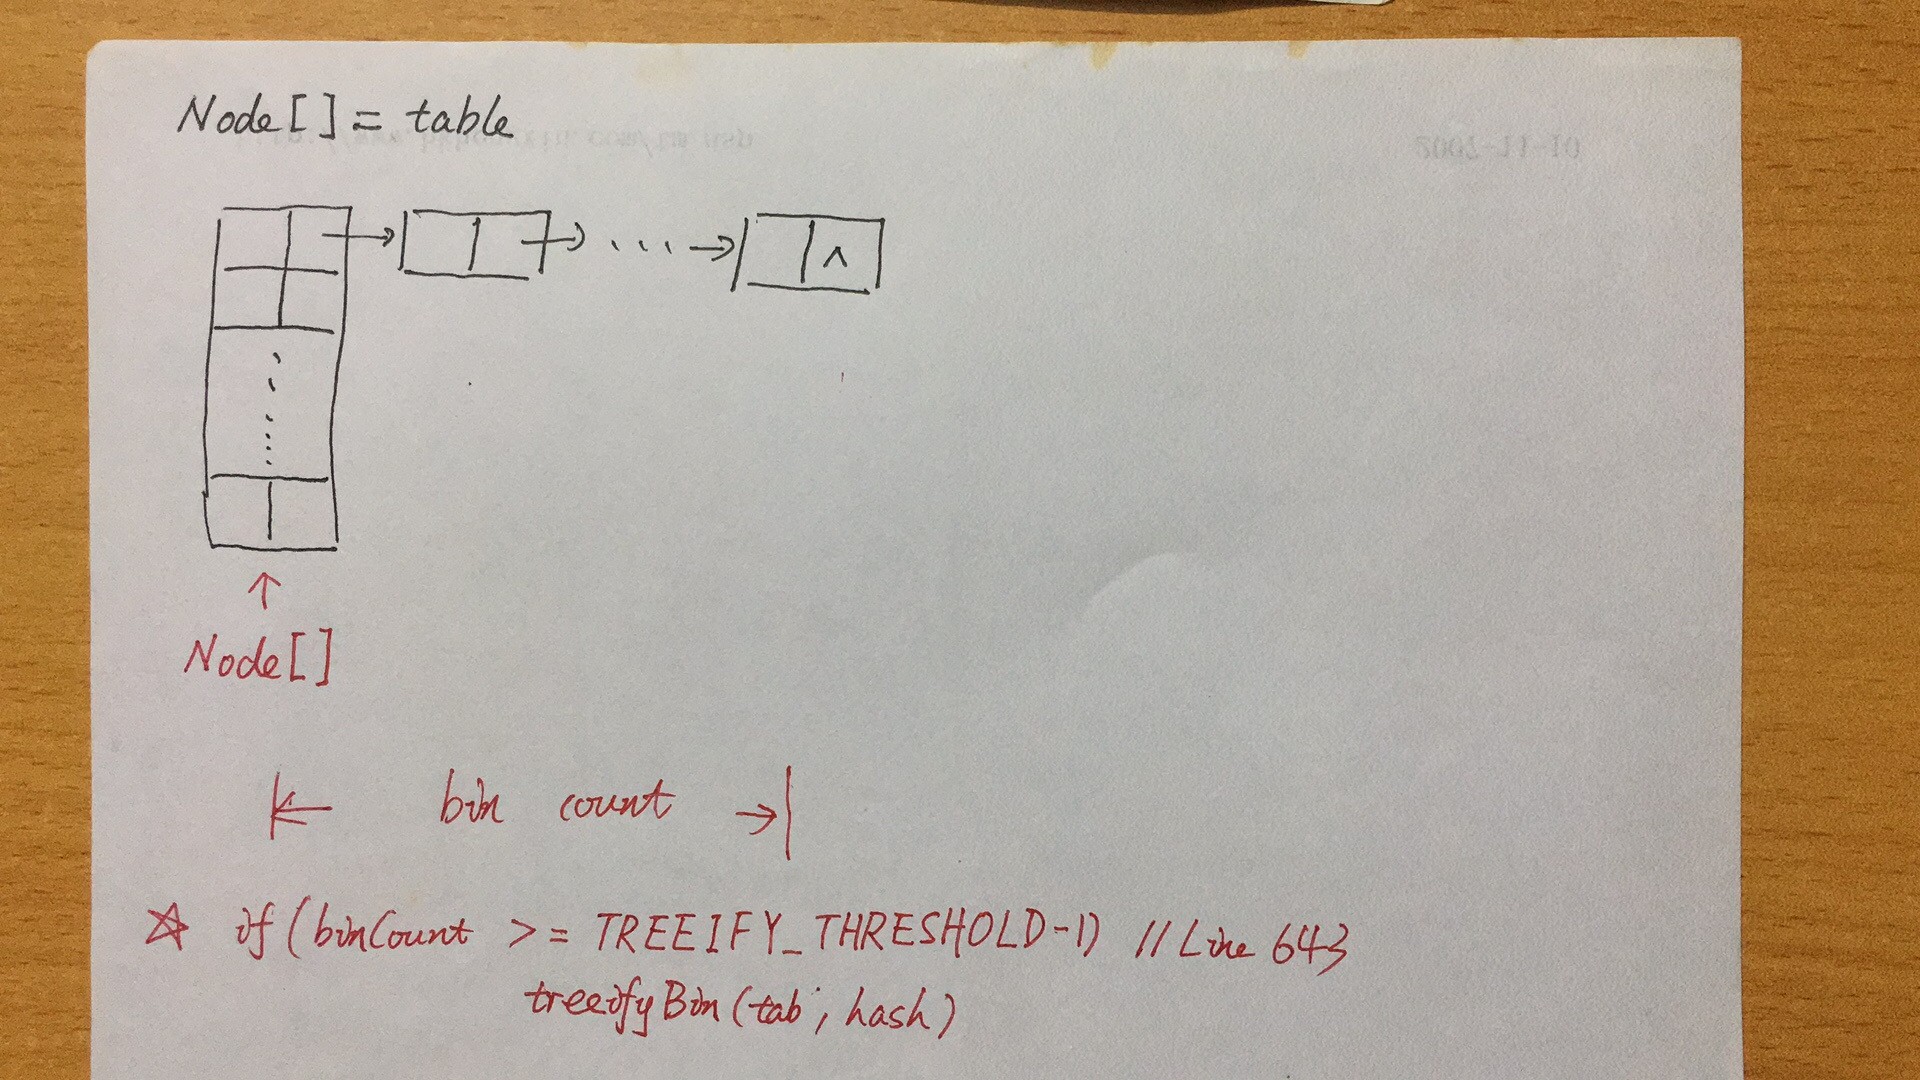 Node[] = table
∧
Node[]
bin count
☆ if (binCount >= TREEIFY_THRESHOLD-1) // Line 643
treeifyBin (tab, hash)